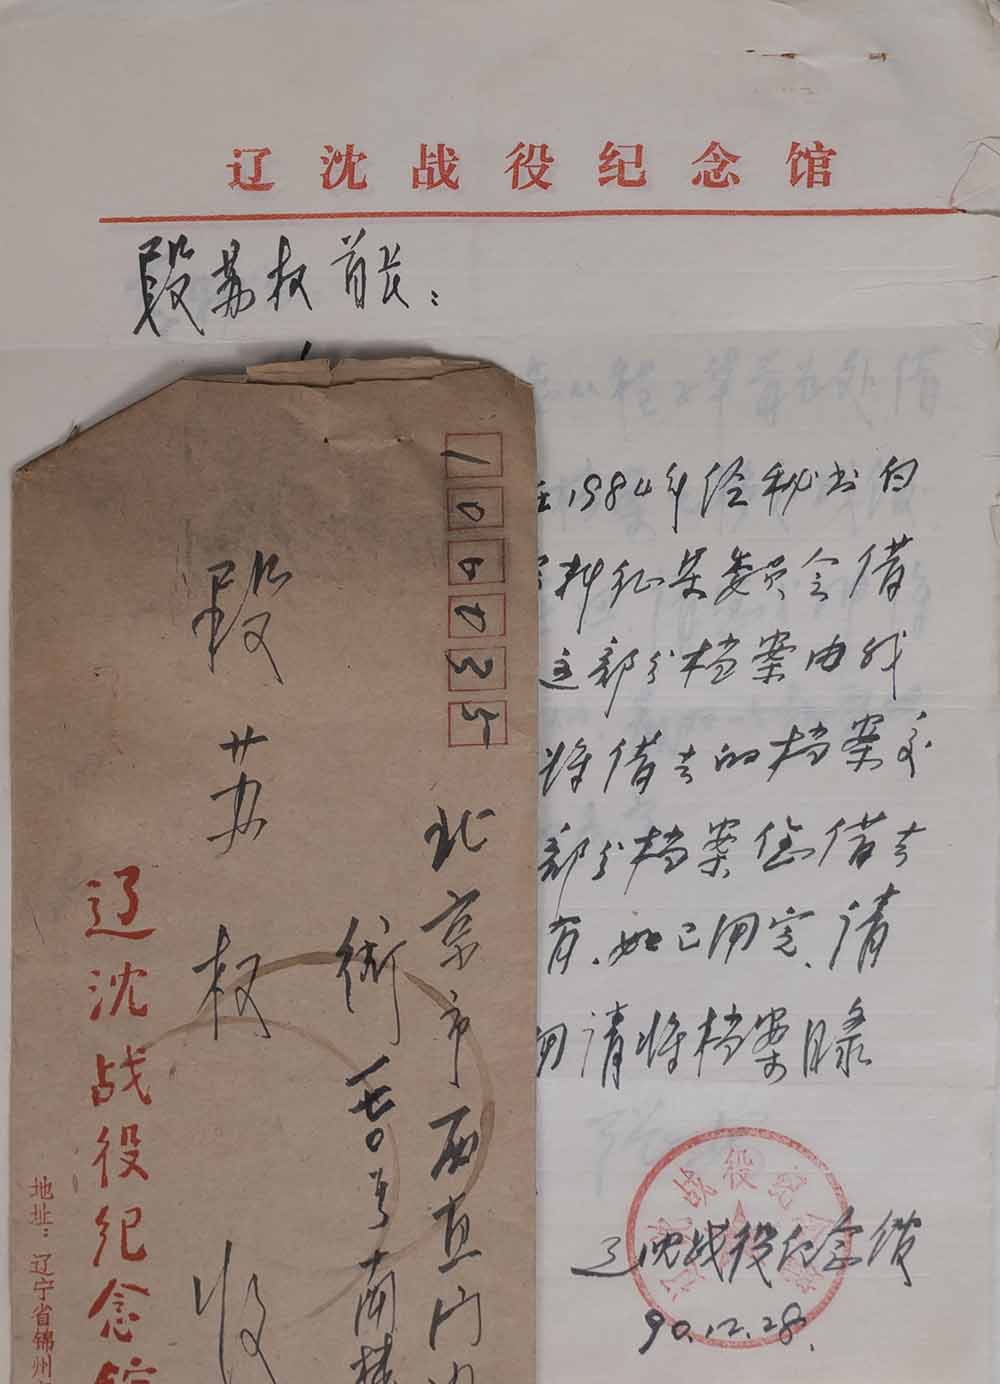 辽沈战役纪念馆
段苏权首长：
在1984年经秘书向
资料征集委员会借
这部分档案由我
将借去的档案交
部分档案您借去
有、如已用完、请
用请将档案目录
辽沈战役纪念馆
90.12.28.
辽沈战役纪念馆
100035
北京市西直门内
街
号南楼
段苏权 收
辽沈战役纪念馆
地址：辽宁省锦州